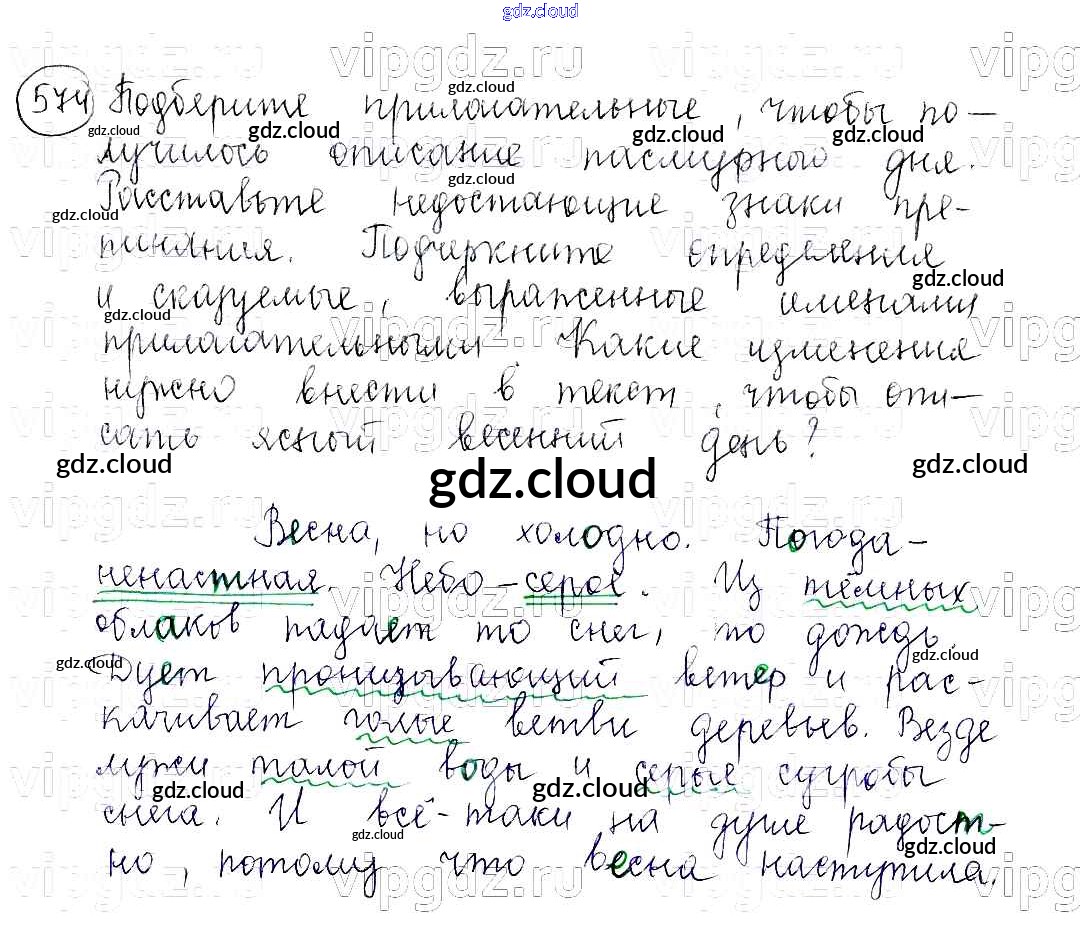 gdz.cloud
574 Подберите прилагательные, чтобы по-
лучилось описание пасмурного дня.
Расставьте недостающие знаки пре-
пинания. Подчеркните определения
и сказуемые, выраженные именами
прилагательными. Какие изменения
нужно внести в текст, чтобы опи-
сать ясный весенний день?
gdz.cloud
Весна, но холодно. Погода-
ненастная. Небо-серое. Из тёмных
облаков падает то снег, то дождь.
Дует пронизывающий ветер и рас-
качивает голые ветви деревьев. Везде
лужи талой воды и серые сугробы
снега. И всё-таки на душе радост-
но, потому что весна наступила.